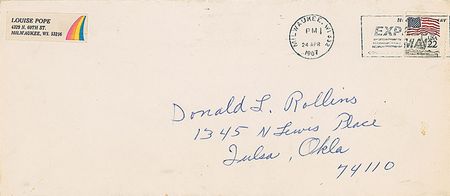 LOUISE POPE
4379 N. 60TH ST.
MILWAUKEE, WI. 53216
MILWAUKEE, WI 532
PM
24 APR
1987
EXP
MA
USA
22
Donald L. Rollins
1345 N Lewis Place
Tulsa, Okla
74110